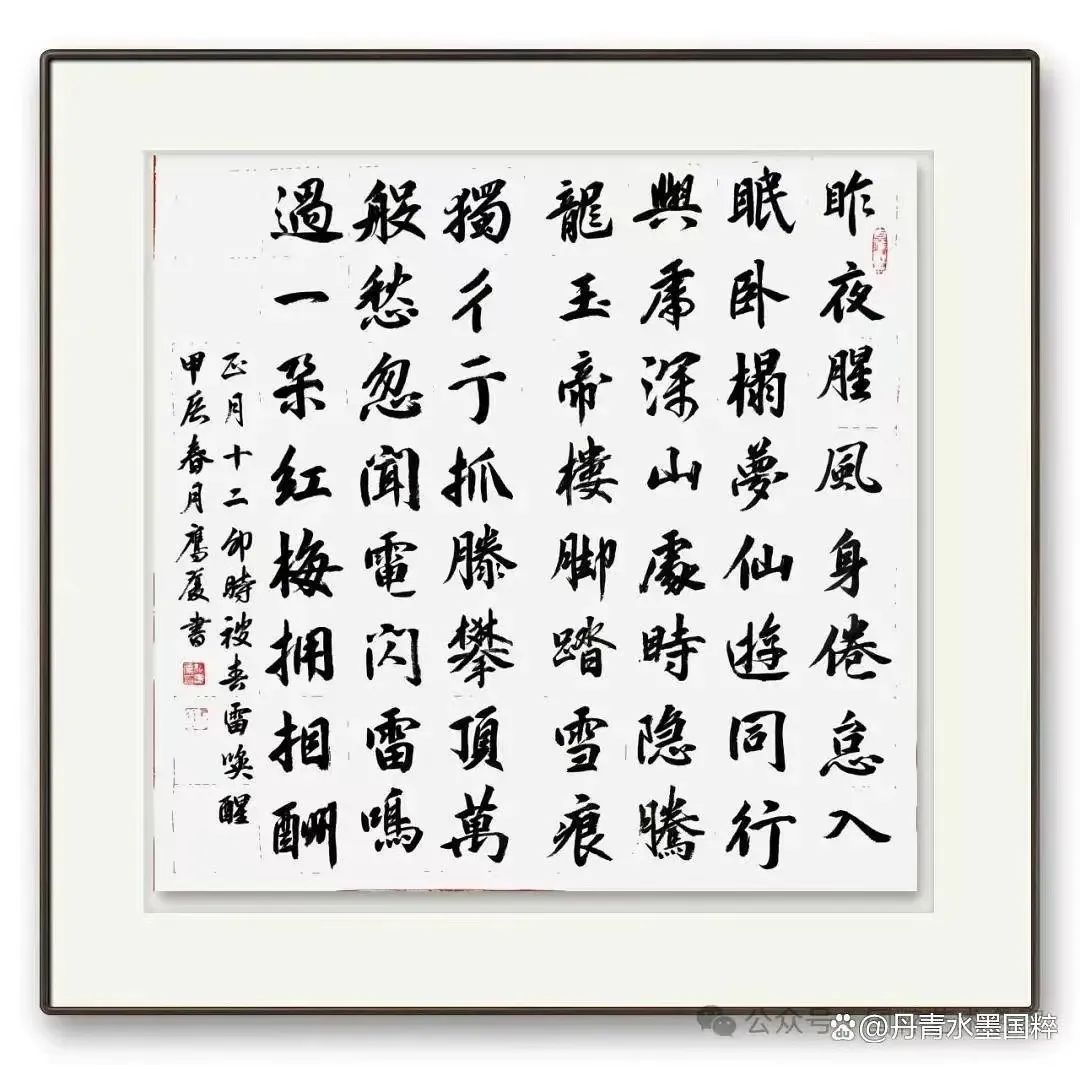 昨夜腥風身倦怠入
眠卧榻夢仙遊同行
與虎深山處時隐騰
龍玉帝樓脚踏雪痕
獨彳亍抓滕攀頂萬
般愁忽闻電闪雷鳴
過一朵红梅拥相酬
正月十二卯時被春雷唤醒
甲辰春月鷹厦書
公众号
@丹青水墨国粹